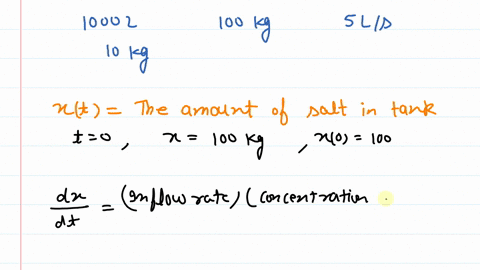 1000L 100 kg 5L/s
10 kg
x(t) = The amount of salt in tank
t=0, x = 100 kg, x(0) = 100
dx/dt = (Inflow rate) (concentration